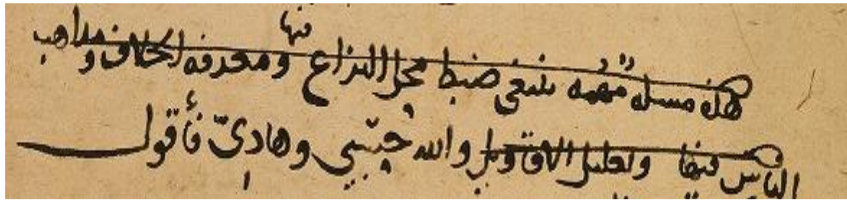 هذه مسئلة مهمة ينبغي ضبط محل النزاع فيها ومعرفة الخلاف ومذاهب
الناس فيها وتعليل الاقاويل والله حسيبي وهاديّ فأقول